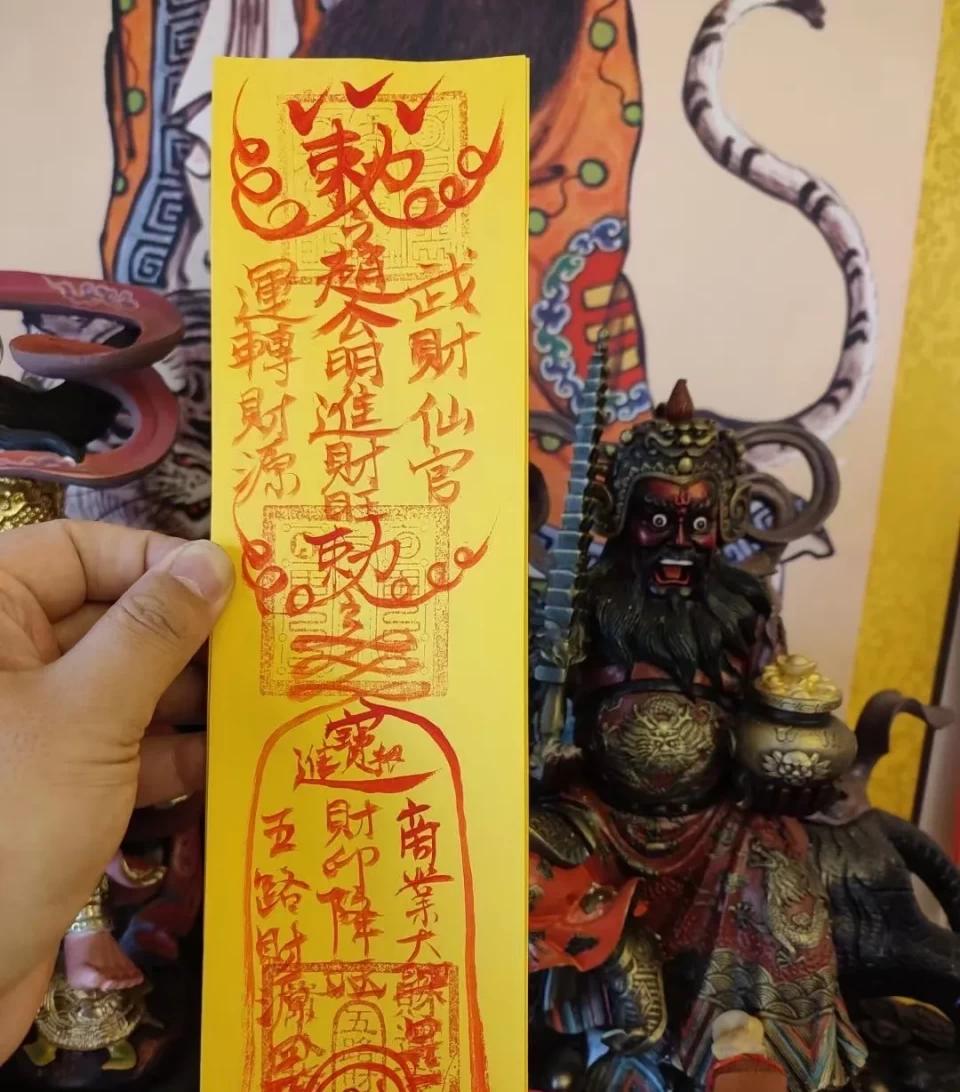 敕
武財仙官
趙公明進財旺
運轉財源
敕
進寶招
商業大
財印降
五路財源
五